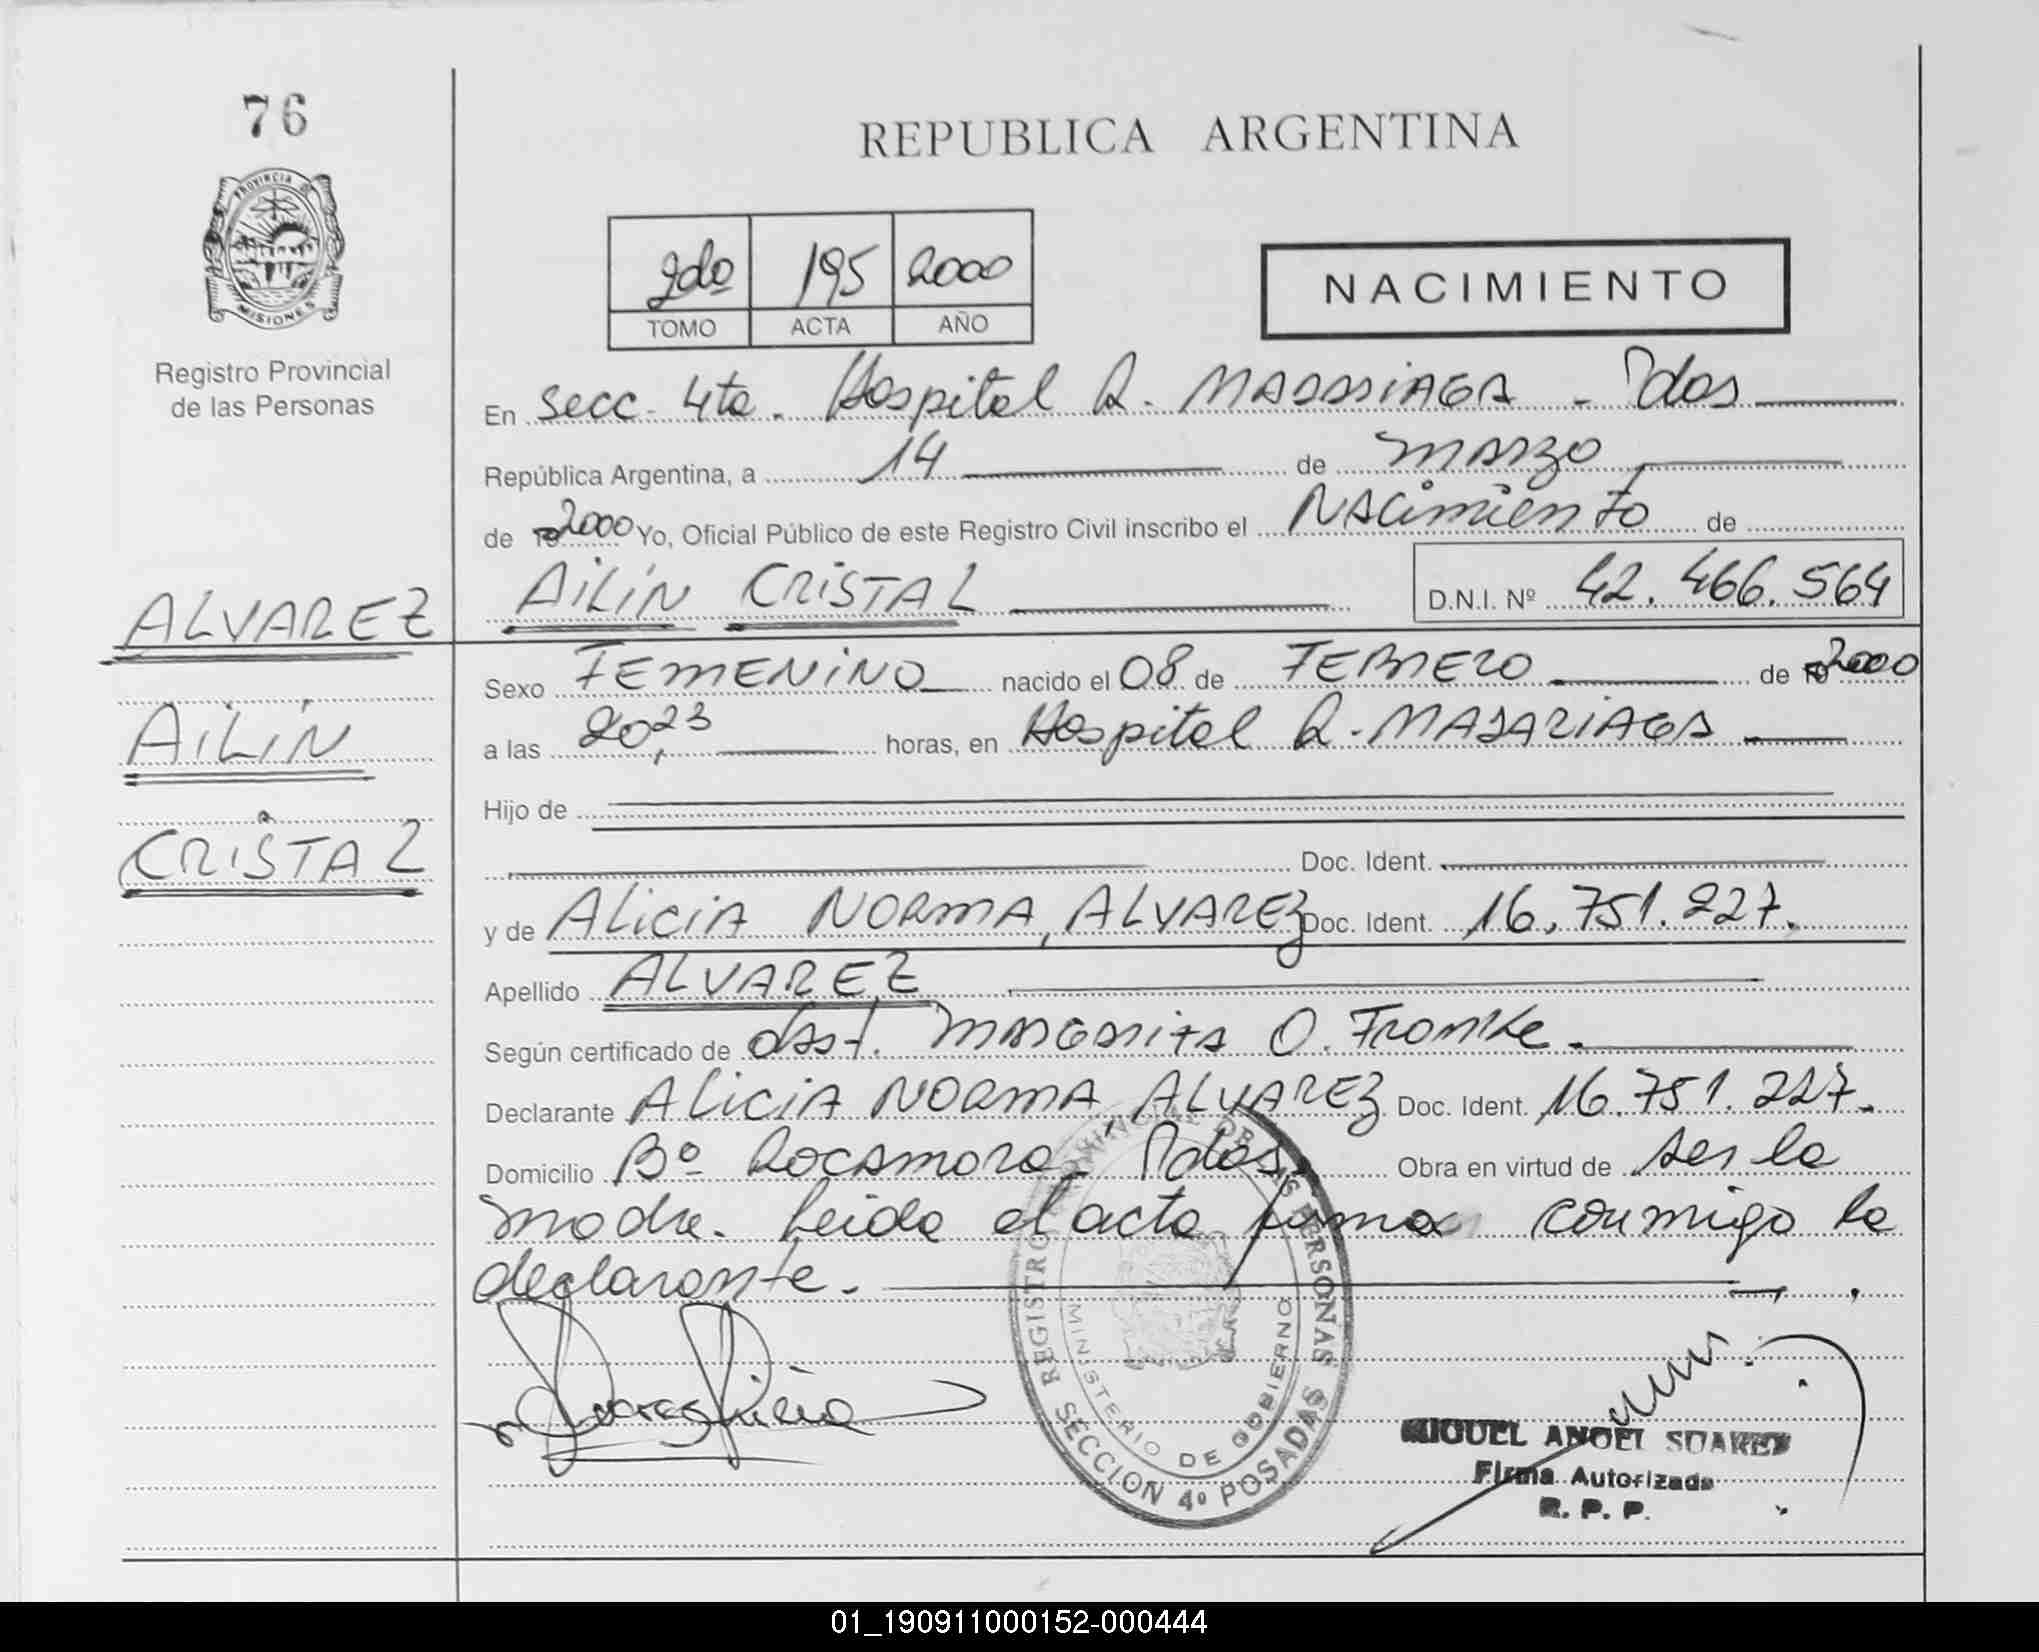 76
PROVINCIA DE
MISIONES
Registro Provincial
de las Personas
REPUBLICA ARGENTINA
2do 195 2000
TOMO ACTA AÑO
NACIMIENTO
En Secc. 4ta. Hospital R. MADARIAGA - Pdas
República Argentina, a 14 de MARZO
de 2000 Yo, Oficial Público de este Registro Civil inscribo el NACimiento de
AiLíN CRiSTAL D.N.I. Nº 42.466.564
ALVAREZ
AiLíN
CRiSTAL
Sexo FEMENiNO nacido el 08 de FEBRERO de 2000
a las 20,23 horas, en Hospital R. MADARIAGA
Hijo de
Doc. Ident.
y de ALiCiA NORMA, ALVAREZ Doc. Ident. 16.751.227.
Apellido ALVAREZ
Según certificado de obst. MARGARITA O. Fromke.
Declarante ALiCiA NORMA ALVAREZ Doc. Ident. 16.751.227.
Domicilio Bº Rocamora - Pdas. Obra en virtud de ser la
madre. Leida el acta firma conmigo la
declarante.
REGISTRO PROVINCIAL DE LAS PERSONAS
MINISTERIO DE GOBIERNO
SECCION 4º POSADAS
MIGUEL ANGEL SUAREZ
Firma Autorizada
R. P. P.
01_190911000152-000444